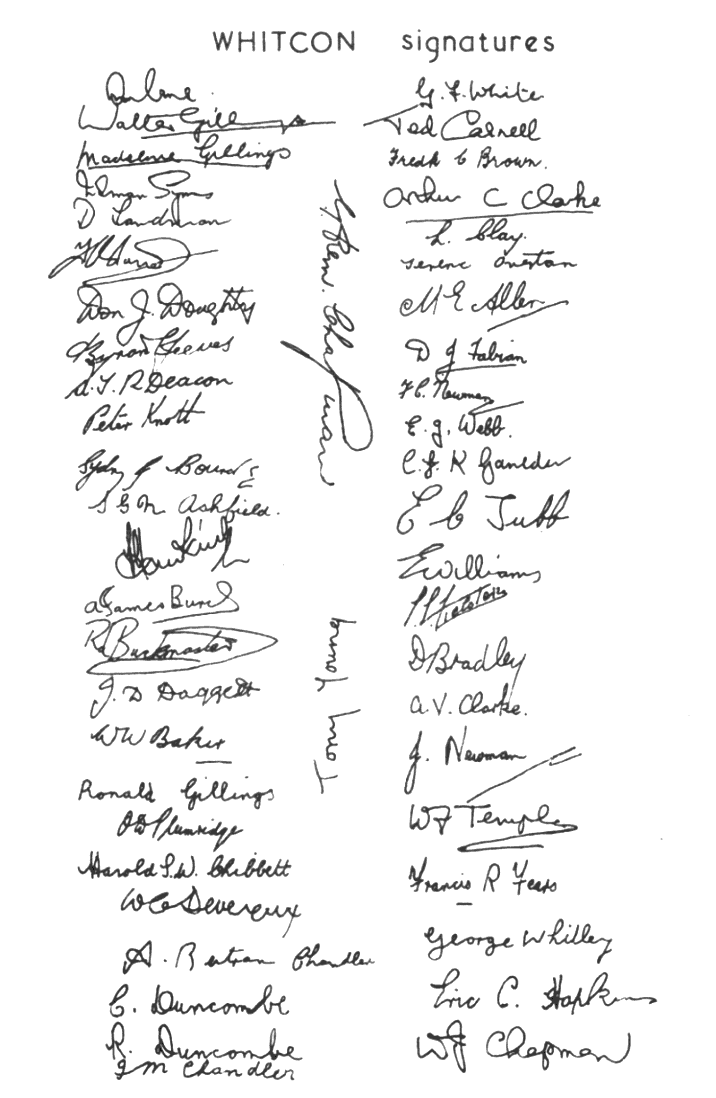 WHITCON signatures
Walter Gillings
Madeleine Gillings
D Landman
Don J. Doughty
A.F.R Deacon
Peter Knott
Sydney J Bounds
S G M Ashfield.
A James Burch
R Buckmaster
J. D Daggett
W W Baker
Ronald Gillings
O D Plumridge
Harold S.W. Chibbett
W C Devereux
A. Bertram Chandler
C. Duncombe
R. Duncombe
J M Chandler
G. Ken. Chapman
Tom Young
G. F. White
Ted Carnell
Fredk C Brown.
Arthur C Clarke
L. Clay.
Terence Overton
M E Allen
D J Fabian
F C. Newman
E. J. Webb.
C. J. K
E C Tubb
E Williams
D Bradley
A. V. Clarke.
J. Newman
W F Temple
Francis R Fears
George Whitley
Eric C. Hopkins
W J Chapman